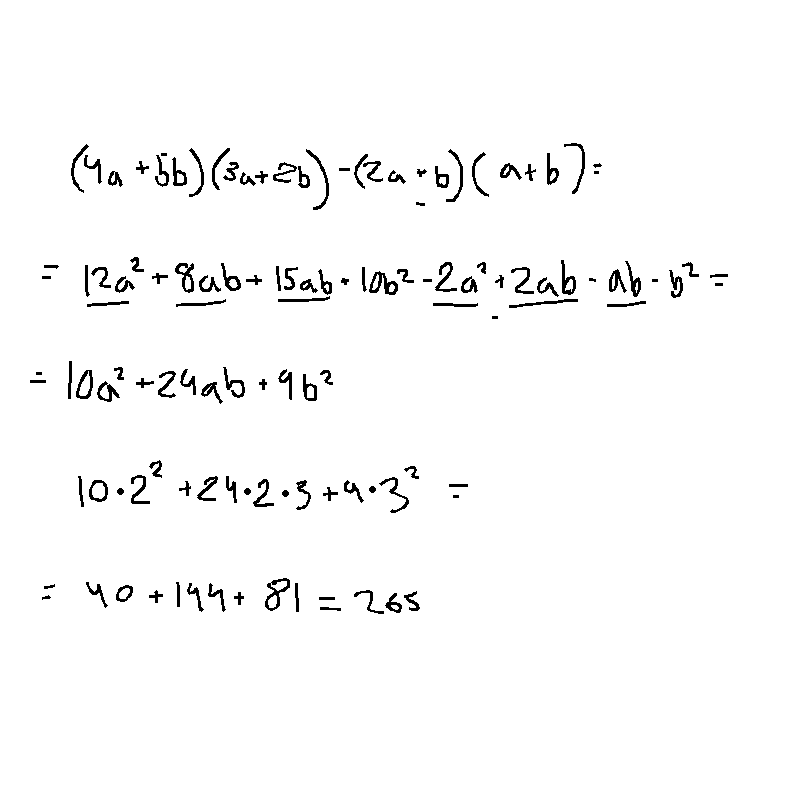 (4a+5b)(3a+2b)-(2a-b)(a+b)=
= 12a²+8ab+15ab+10b²-2a²+2ab-ab-b²=
= 10a²+24ab+9b²
10·2²+24·2·3+9·3² =
= 40+144+81=265